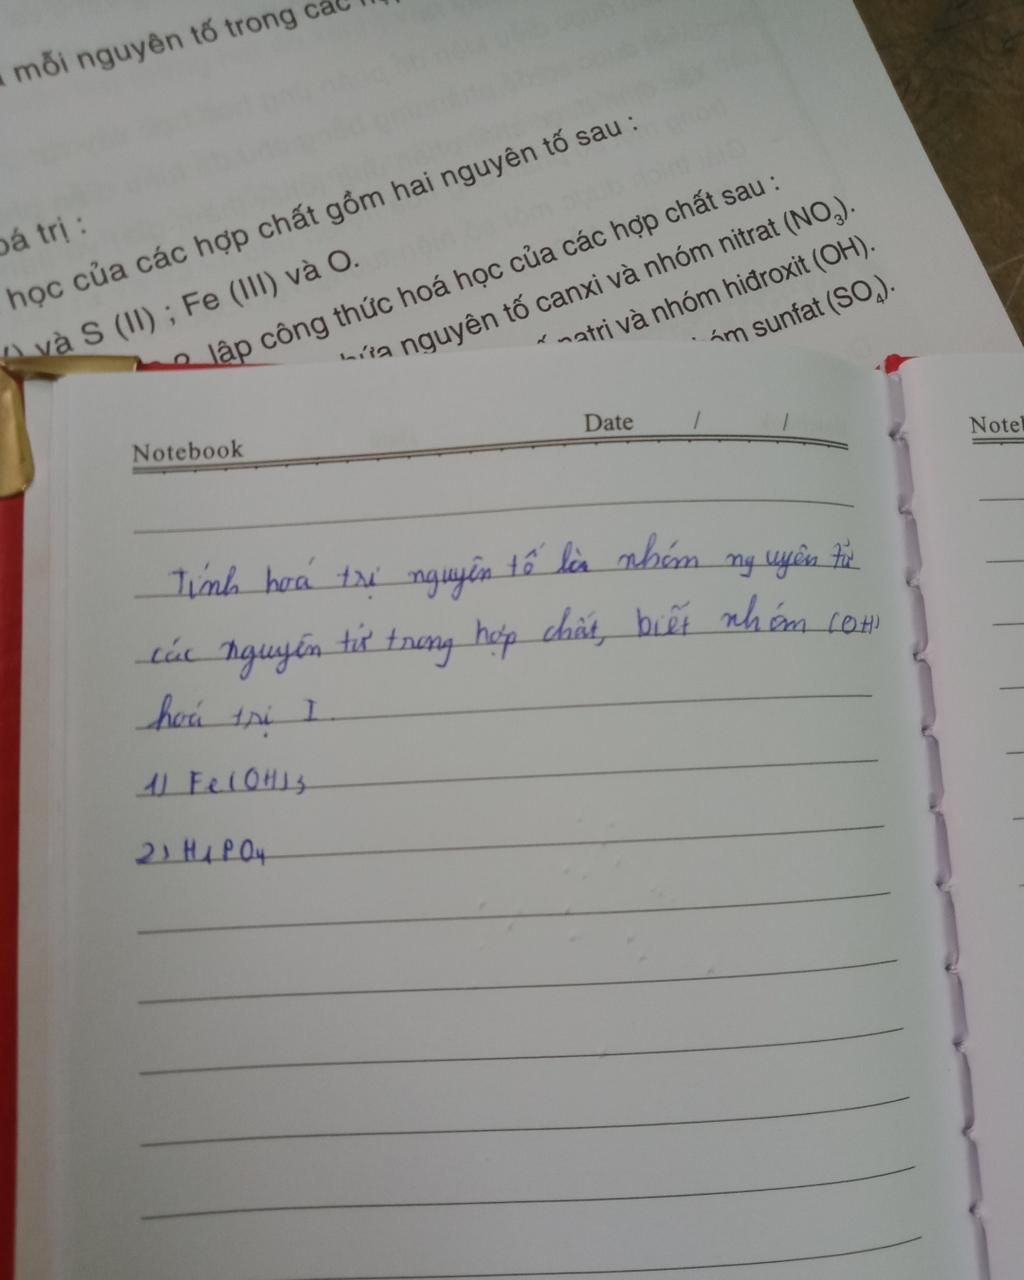 mỗi nguyên tố trong các
oá trị :
học của các hợp chất gồm hai nguyên tố sau :
và S (II) ; Fe (III) và O.
lập công thức hoá học của các hợp chất sau :
nguyên tố canxi và nhóm nitrat (NO₃).
natri và nhóm hiđroxit (OH).
óm sunfat (SO₄).
Notebook Date / /
Tính hoá trị nguyên tố là nhóm nguyên tử
các nguyên tử trong hợp chất, biết nhóm (OH)
hoá trị I.
1) Fe(OH)3
2) H1PO4